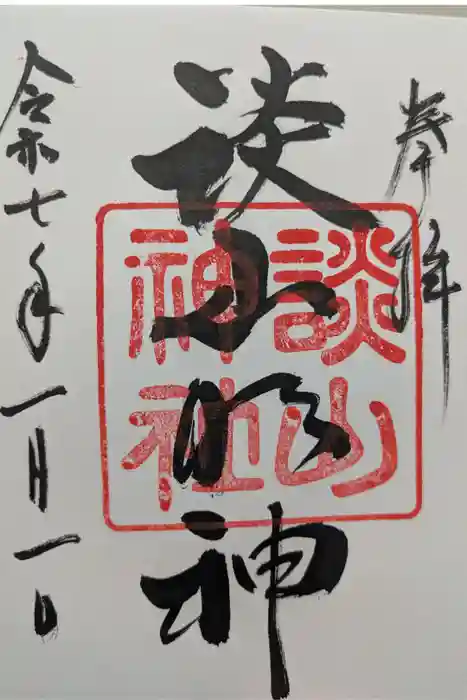 奉拝
談山明神
談山神社
令和七年一月一日